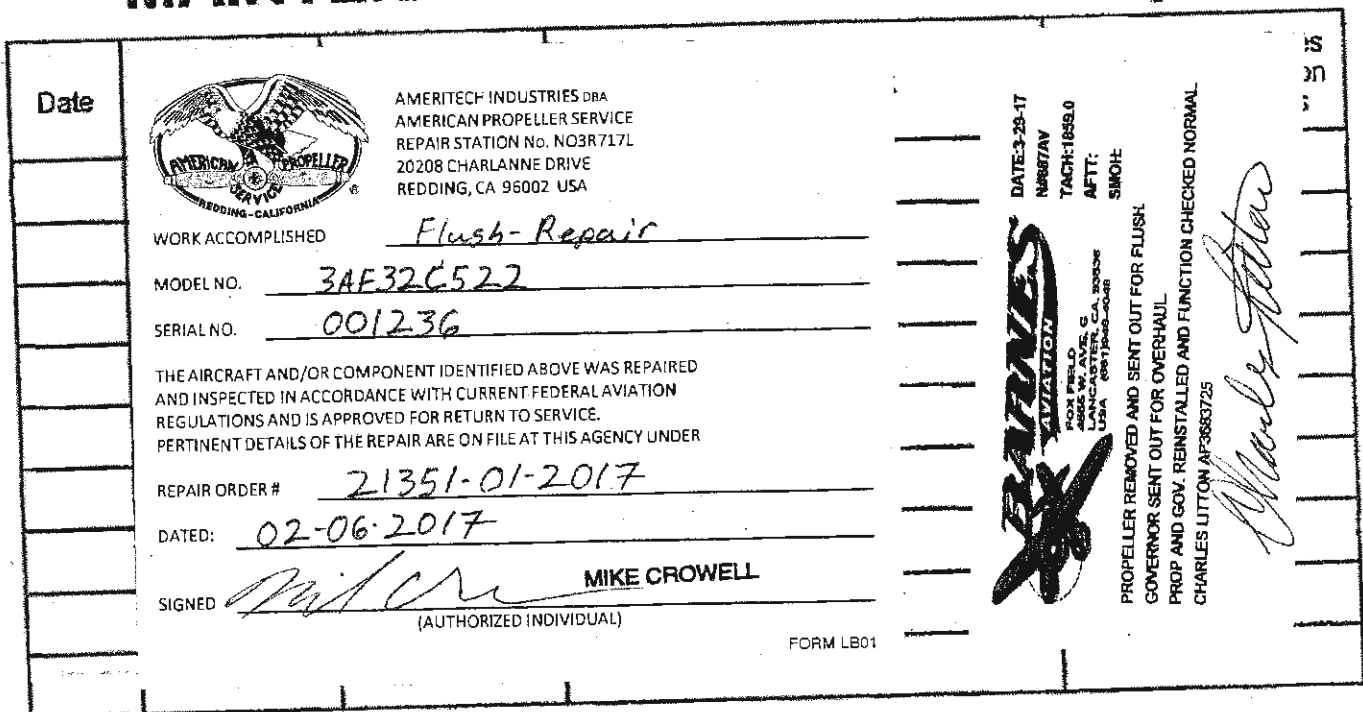 Date
AMERICAN PROPELLER
SERVICE
REDDING-CALIFORNIA
®
AMERITECH INDUSTRIES DBA
AMERICAN PROPELLER SERVICE
REPAIR STATION No. NO3R717L
20208 CHARLANNE DRIVE
REDDING, CA 96002 USA
WORK ACCOMPLISHED Flush-Repair
MODEL NO. 3AF32C522
SERIAL NO. 001236
THE AIRCRAFT AND/OR COMPONENT IDENTIFIED ABOVE WAS REPAIRED
AND INSPECTED IN ACCORDANCE WITH CURRENT FEDERAL AVIATION
REGULATIONS AND IS APPROVED FOR RETURN TO SERVICE.
PERTINENT DETAILS OF THE REPAIR ARE ON FILE AT THIS AGENCY UNDER
REPAIR ORDER # 21351-01-2017
DATED: 02-06-2017
SIGNED MIKE CROWELL
(AUTHORIZED INDIVIDUAL)
FORM LB01
BARNES
AVIATION
FOX FIELD
4555 W. AVE. G
LANCASTER, CA. 93536
USA (661)948-4048
DATE:3-29-17
N#687AV
TACH:1859.0
AFTT:
SMOH:
PROPELLER REMOVED AND SENT OUT FOR FLUSH.
GOVERNOR SENT OUT FOR OVERHAUL
PROP AND GOV. REINSTALLED AND FUNCTION CHECKED NORMAL
CHARLES LITTON AP3683725